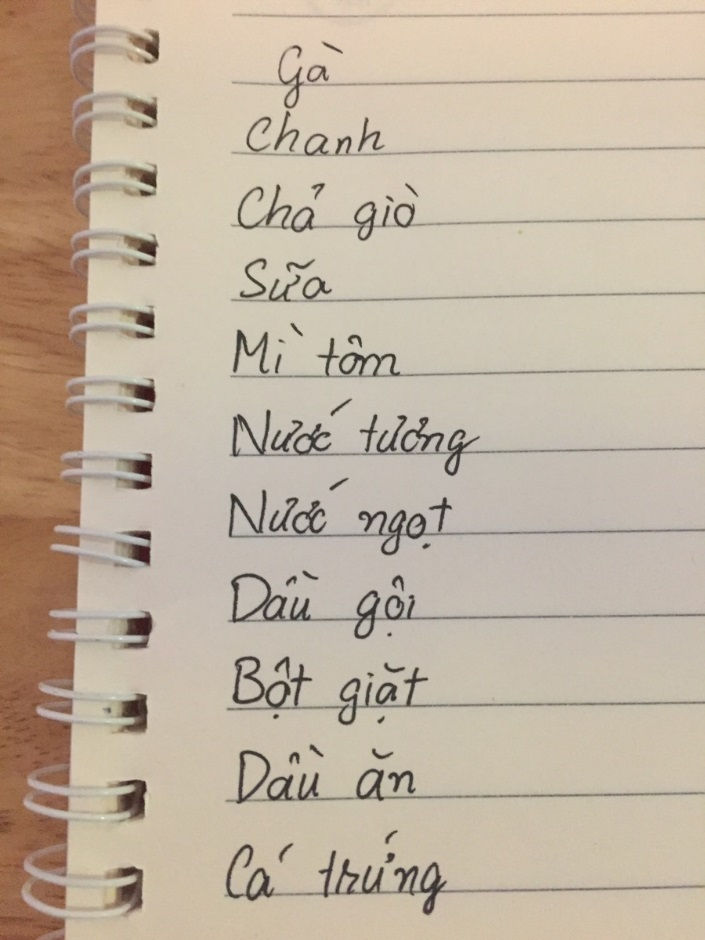 Gà
Chanh
Chả giò
Sữa
Mì tôm
Nước tương
Nước ngọt
Dầu gội
Bột giặt
Dầu ăn
Cá trứng